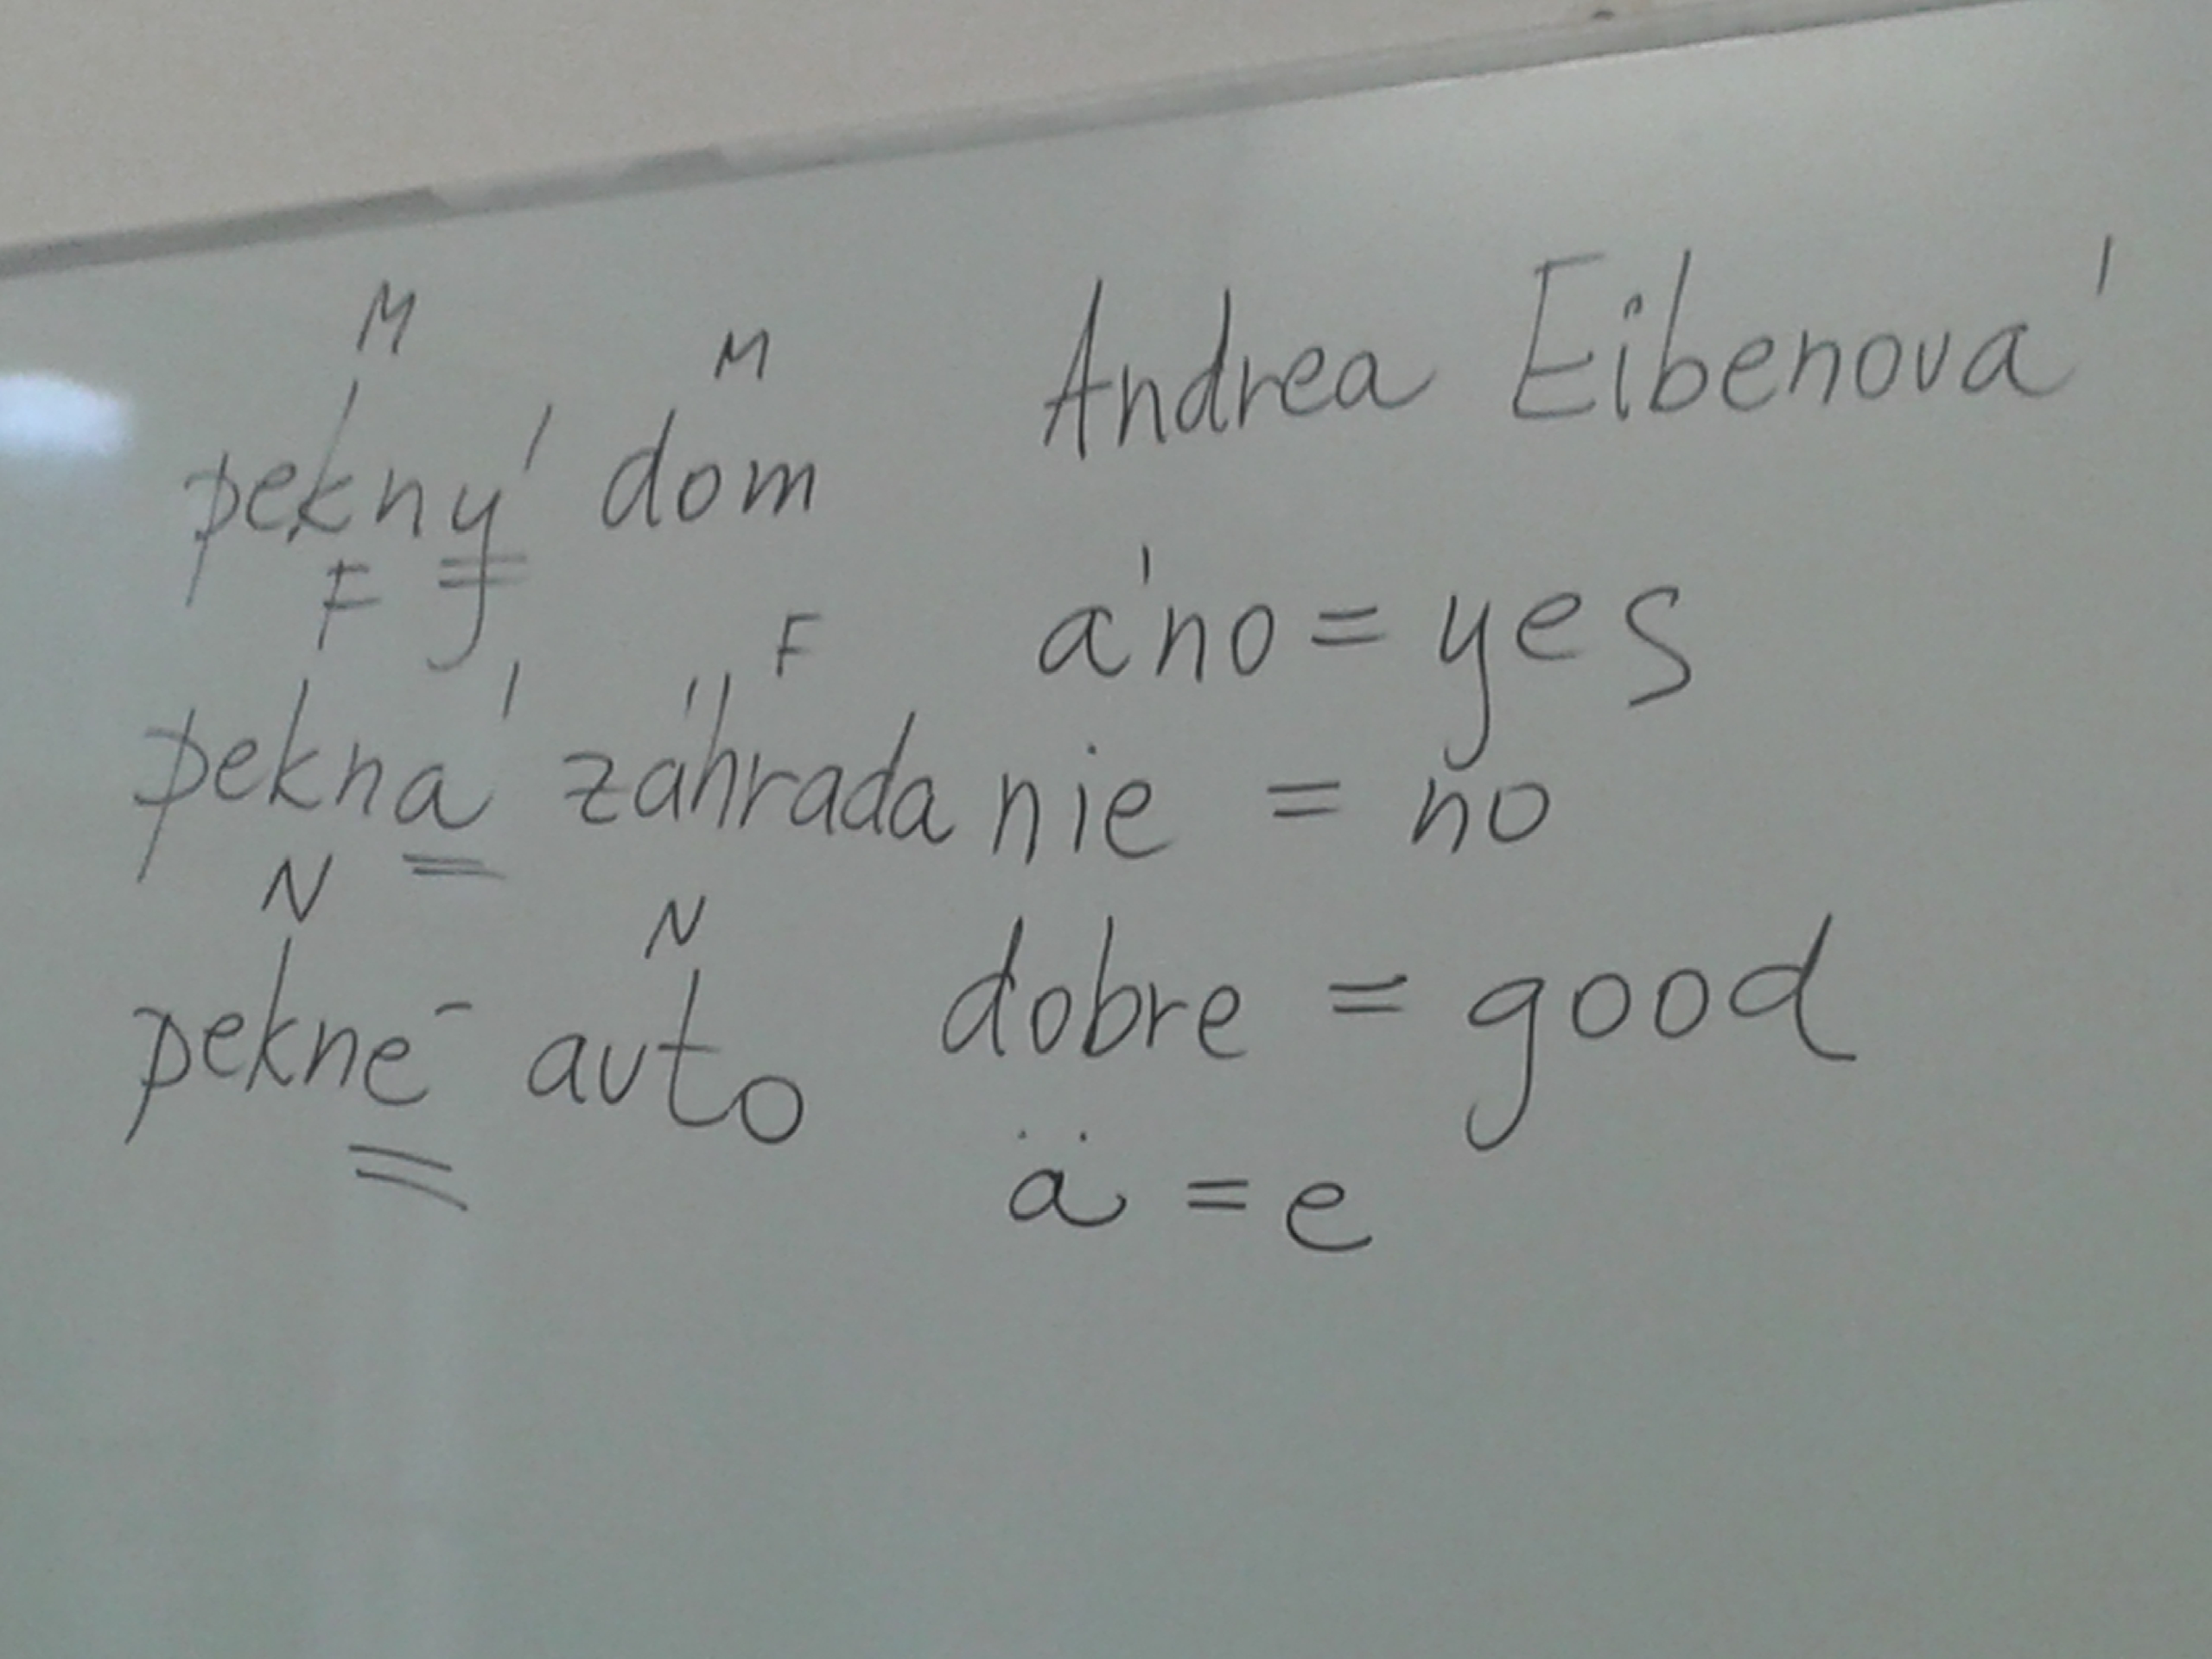 M M
pekný dom
F F
pekná záhrada
N N
pekné auto
Andrea Eibenová
áno = yes
nie = no
dobre = good
ä = e